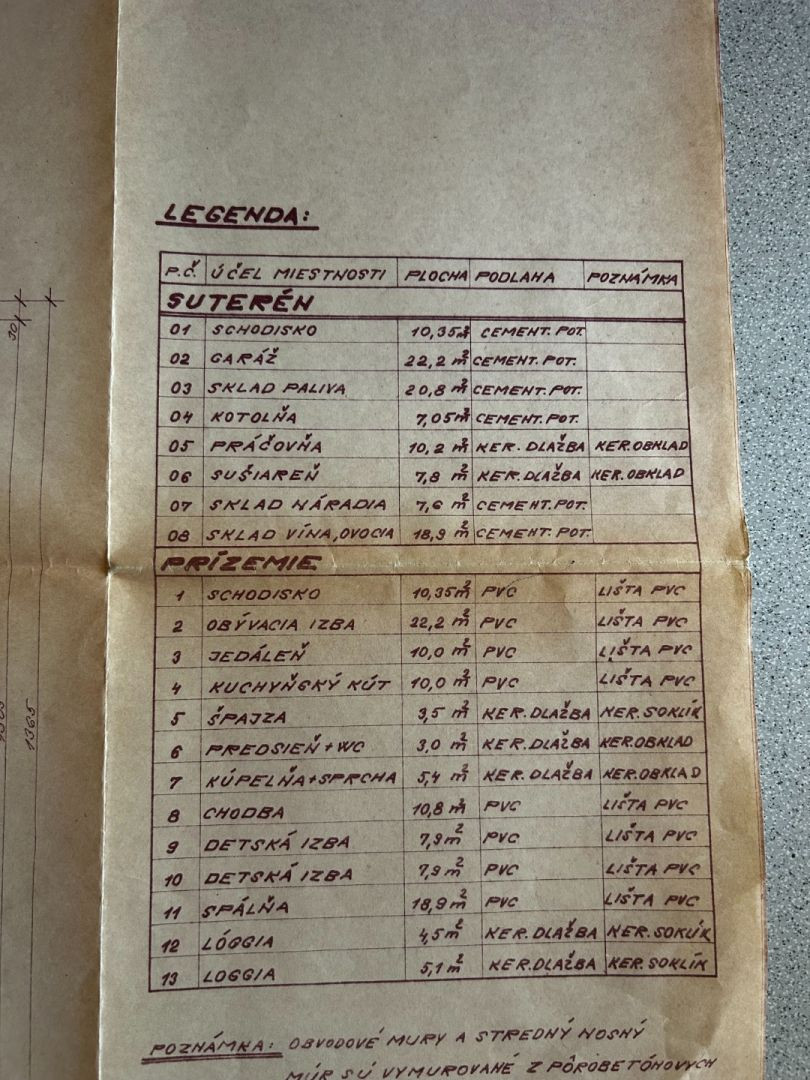 LEGENDA:
P.Č. ÚČEL MIESTNOSTI PLOCHA PODLAHA POZNÁMKA
SUTERÉN
01 SCHODISKO 10,35m² CEMENT. POT.
02 GARÁŽ 22,2 m² CEMENT. POT.
03 SKLAD PALIVA 20,8 m² CEMENT. POT.
04 KOTOLŇA 7,05m² CEMENT. POT.
05 PRÁČOVŇA 10,2 m² KER. DLAŽBA KER. OBKLAD
06 SUŠIAREŇ 7,8 m² KER. DLAŽBA KER. OBKLAD
07 SKLAD NÁRADIA 7,6 m² CEMENT. POT.
08 SKLAD VÍNA, OVOCIA 18,9 m² CEMENT. POT.
PRÍZEMIE
1 SCHODISKO 10,35m² PVC LIŠTA PVC
2 OBÝVACIA IZBA 22,2 m² PVC LIŠTA PVC
3 JEDÁLEŇ 10,0 m² PVC LIŠTA PVC
4 KUCHYŇSKÝ KÚT 10,0 m² PVC LIŠTA PVC
5 ŠPAJZA 3,5 m² KER. DLAŽBA KER. SOKLÍK
6 PREDSIEŇ + WC 3,0 m² KER. DLAŽBA KER. OBKLAD
7 KÚPELŇA + SPRCHA 5,4 m² KER. DLAŽBA KER. OBKLAD
8 CHODBA 10,8 m² PVC LIŠTA PVC
9 DETSKÁ IZBA 7,9 m² PVC LIŠTA PVC
10 DETSKÁ IZBA 7,9 m² PVC LIŠTA PVC
11 SPÁLŇA 18,9 m² PVC LIŠTA PVC
12 LÓGGIA 4,5m² KER. DLAŽBA KER. SOKLÍK
13 LOGGIA 5,1 m² KER. DLAŽBA KER. SOKLÍK
POZNÁMKA: OBVODOVÉ MURY A STREDNÝ NOSNÝ
MÚR SÚ VYMUROVANÉ Z PÓROBETÓNOVÝCH
30
1365